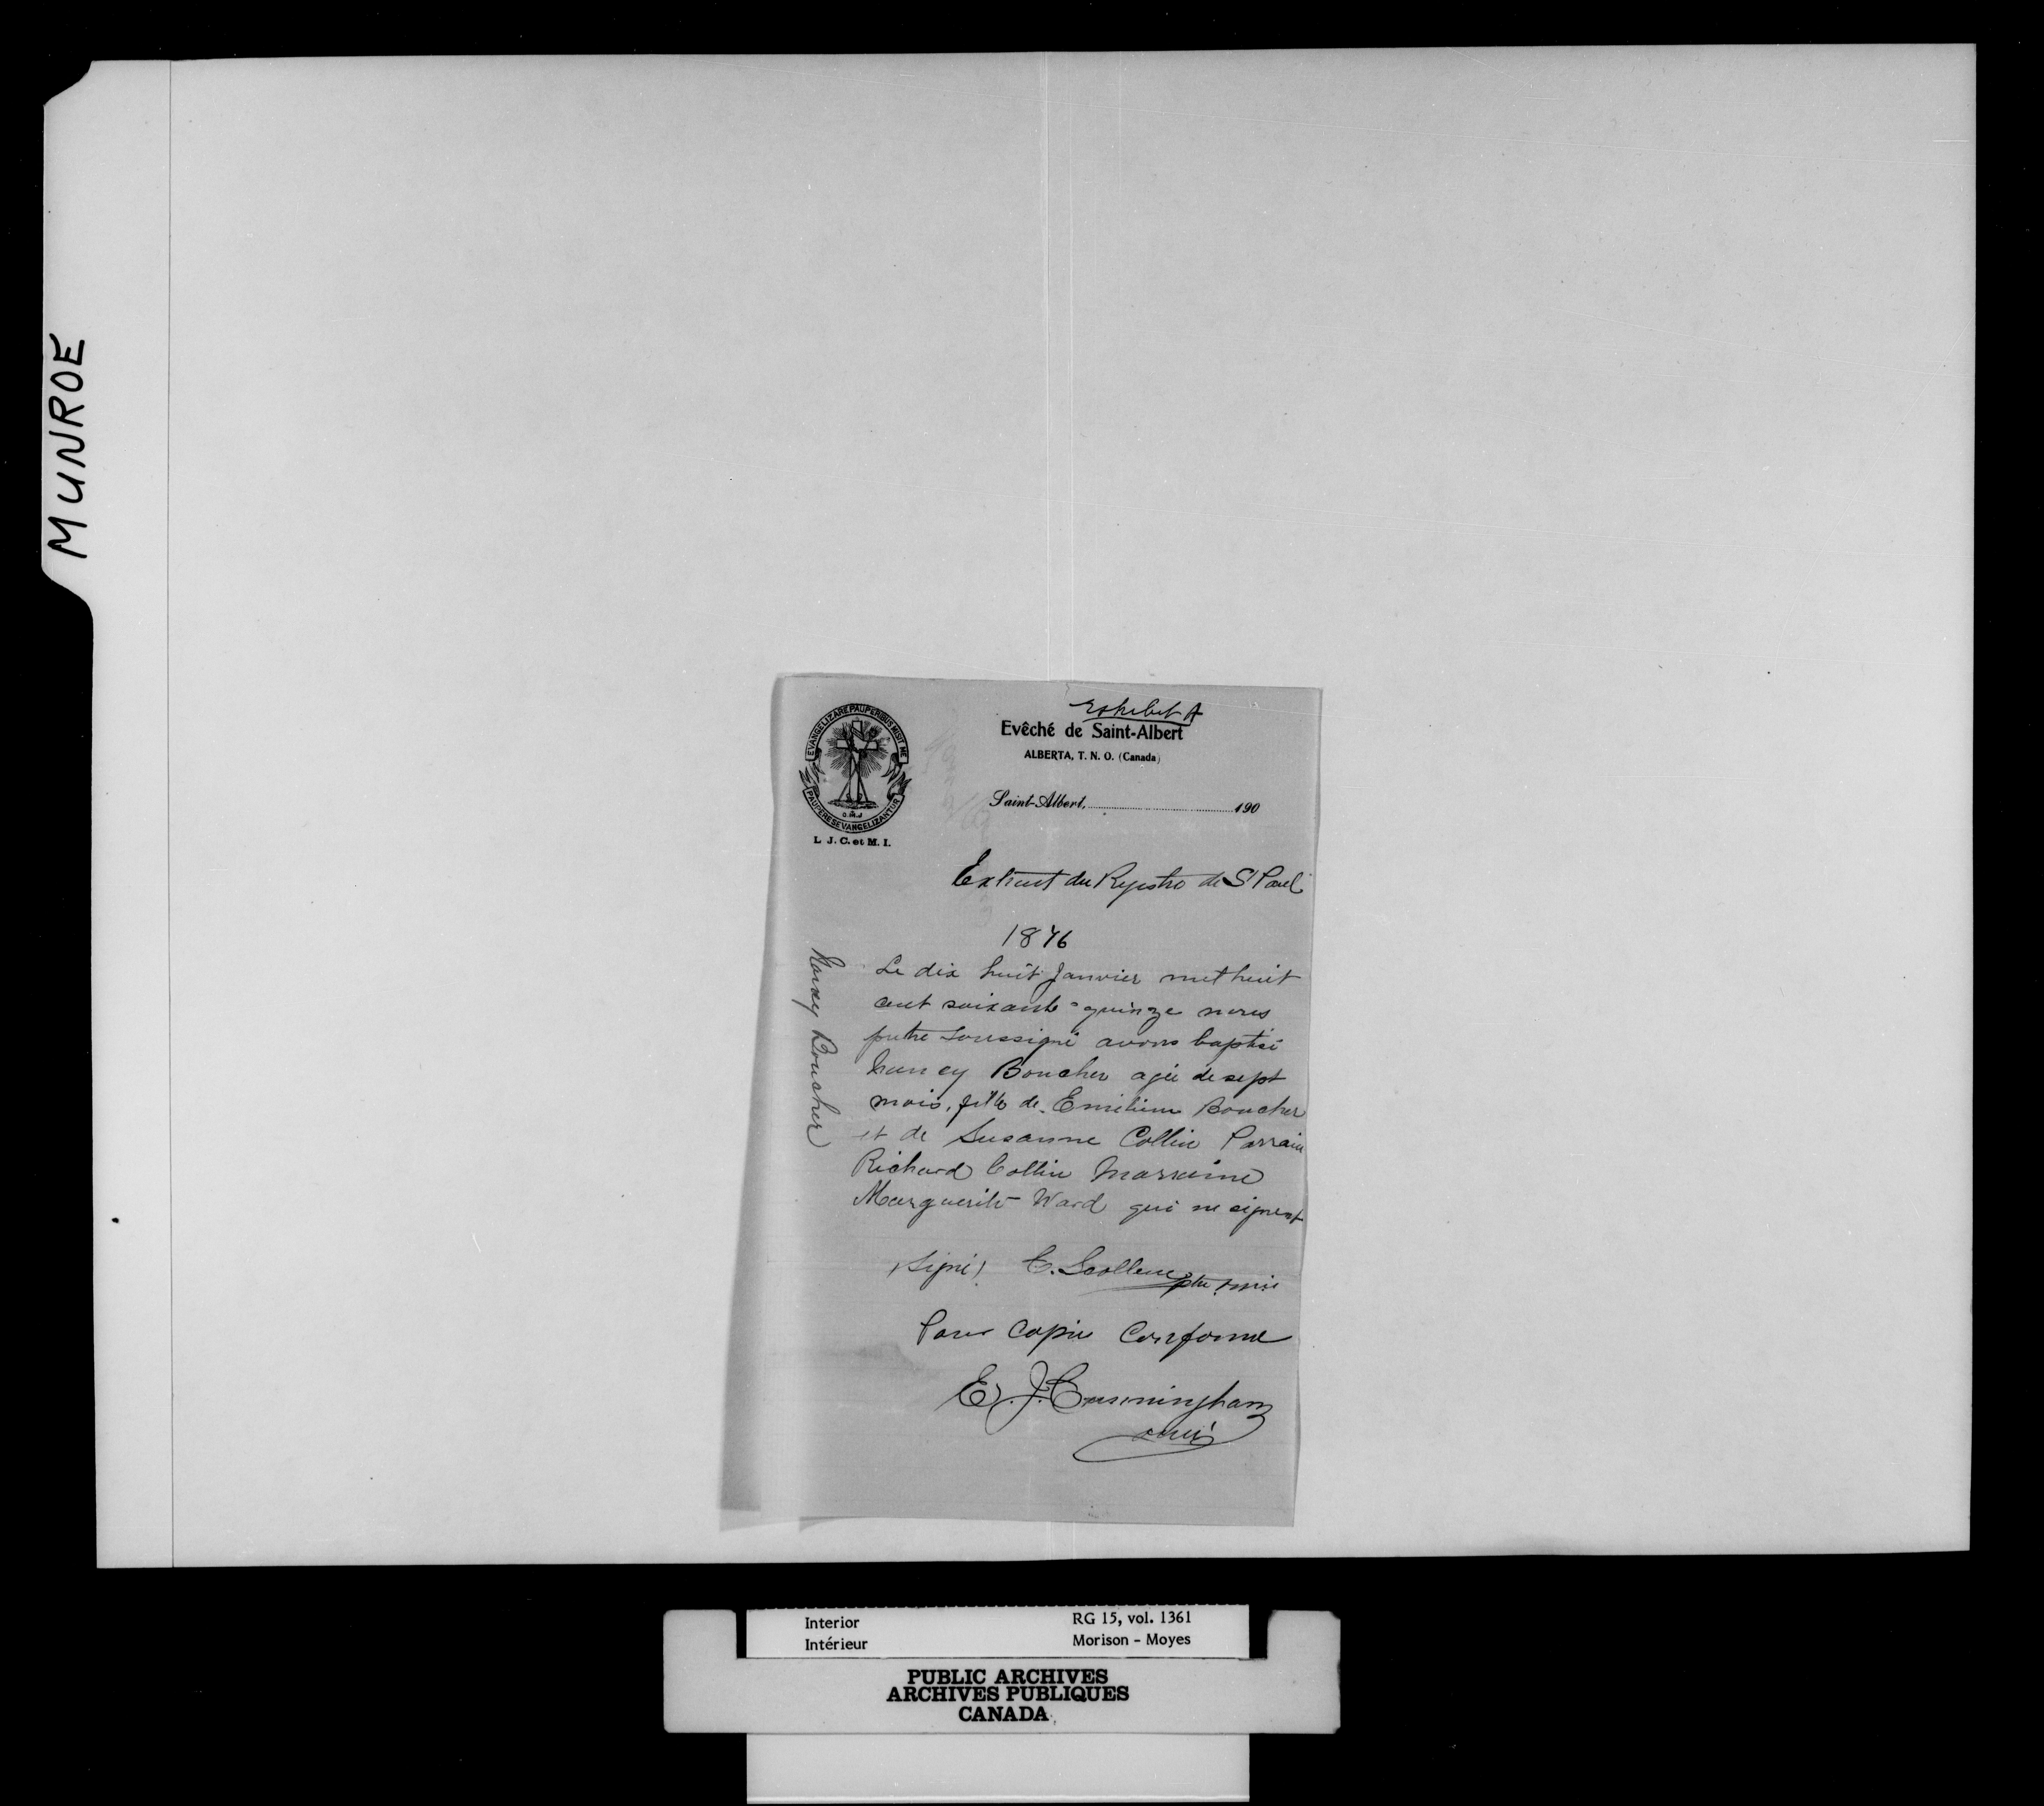 MUNROE
Exhibit A
EVANGELIZARE PAUPERIBUS MISIT ME
PAUPERES EVANGELIZANTUR
O.M.I.
L. J. C. et M. I.
Evêché de Saint-Albert
ALBERTA, T. N. O. (Canada)
Saint-Albert, 190
Extrait du Registre de St Paul
1876
Nancy Boucher
Le dix huit Janvier mil huit
cent soixante-quinze nous
prêtre soussigné avons baptisé
Nancy Boucher agée de sept
mois, fille de Emilien Boucher
et de Susanne Collin Parrain
Richard Collin Marraine
Marguerite Ward qui ne signent
(Signé) C. Scollen ptre
Pour Copie Conforme
E. J. Cunningham
omi
Interior RG 15, vol. 1361
Intérieur Morison - Moyes
PUBLIC ARCHIVES
ARCHIVES PUBLIQUES
CANADA